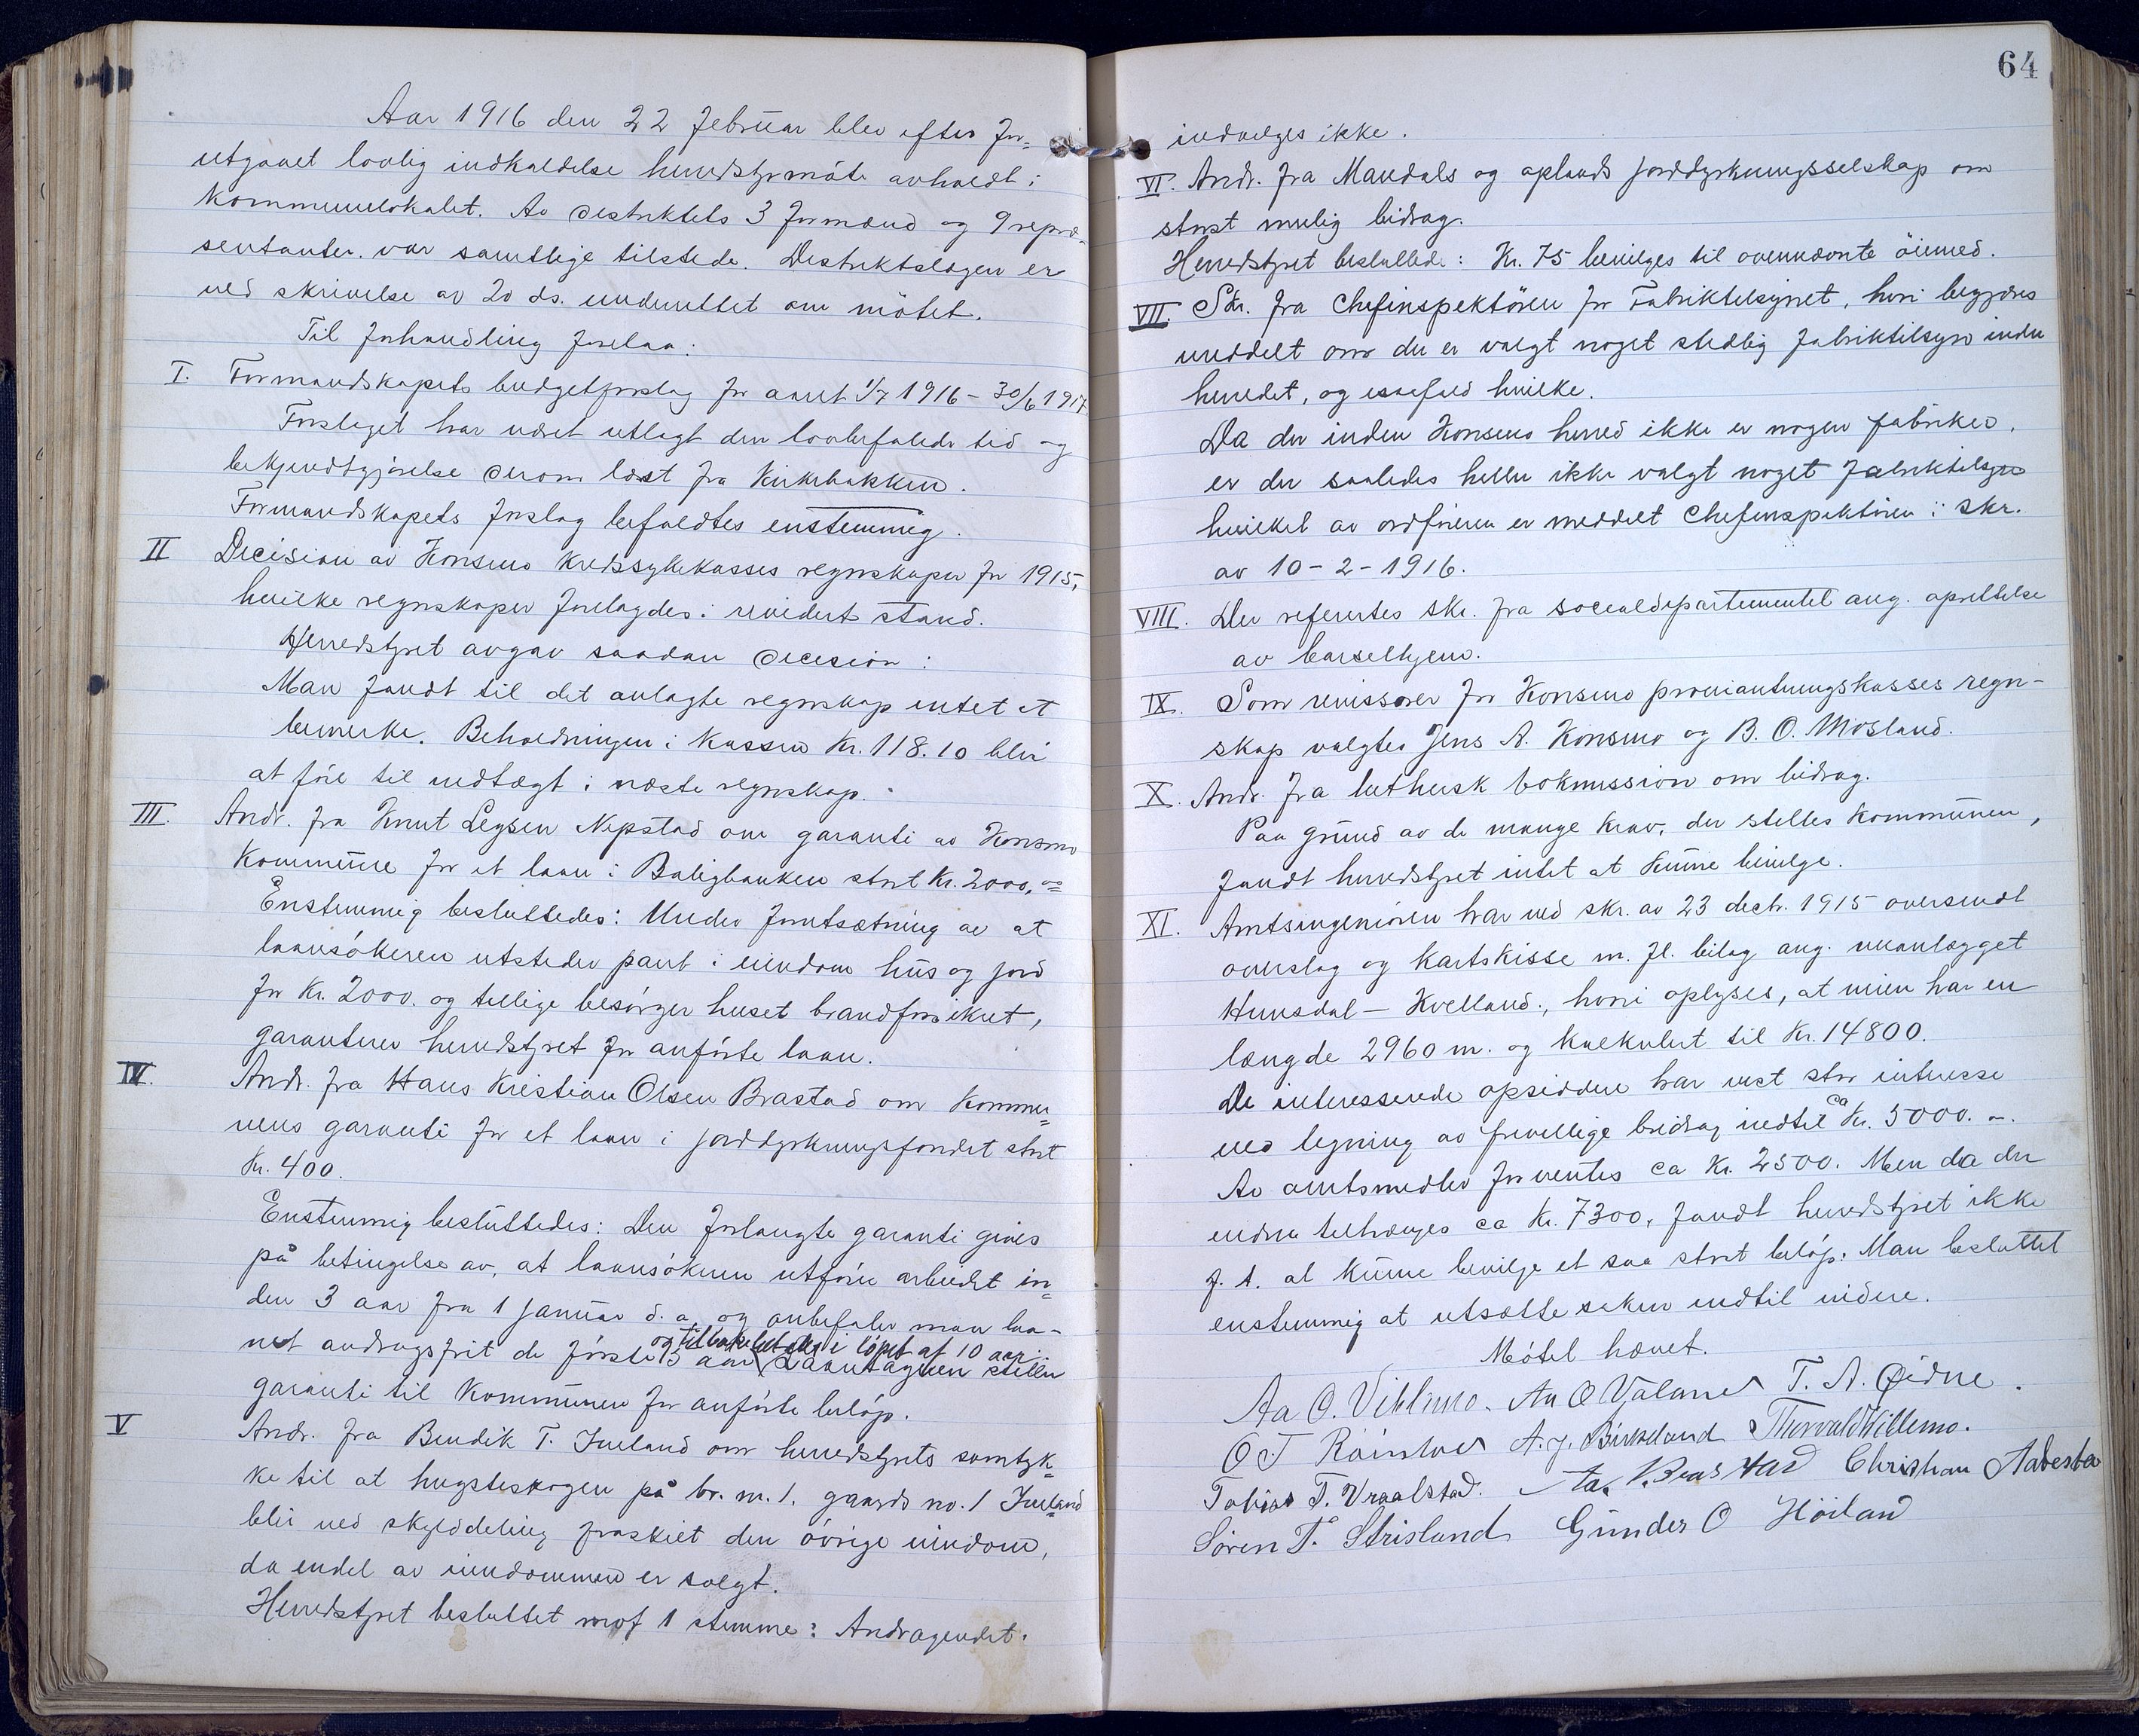 Aar 1916 den 22 Februar blev efter for=
utgaaet lovlig indkaldelse herredstyrmöte avholdt i
Kommunelokalet. Av distriktets 3 formænd og 9 repræ=
sentanter var samtlige tilstede. Distriktslægen er
ved skrivelse av 20 ds. underrettet om mötet.
Til forhandling forelaa:
I. Formandskapets budgetforslag for aaret 1/7 1916 - 30/6 1917
Forslaget har været utlagt den lovbefalede tid og
bekjendtgjörelse derom læst fra Kirkebakken.
Formandskapets forslag befaldtes enstemmig.
II Decision av Konsmo Kredssykekasses regnskaper for 1915,
hvilke regnskaper forelagdes i revidert stand.
Herredstyret avgav saadan decision:
Man fandt til det anlagte regnskap intet at
bemerke. Beholdningen i Kassen Kr. 118.10 blir
at före til indtægt i næste regnskap.
III. Andr. fra Knut Legsen Nepstad om garanti av Konsmo
Kommune for et laan i Boligbanken stort Kr. 2000,00
Enstemmig besluttedes: Under forutsætning av at
laansökeren utsteder pant i eiendom hus og jord
for Kr. 2000. og tillige besörger huset brandforsikret,
garanterer herredstyret for anförte laan.
IV. Andr. fra Hans Kristian Olsen Brastad om Kommu=
nens garanti for et laan i jorddyrkningsfondet stort
Kr. 400.
Enstemmig besluttedes: Den forlangte garanti gives
på betingelse av, at laansökeren utförer arbeidet in=
den 3 aar fra 1 januar d. a. og anbefaler man laa-
net avdragsfrit de förste 5 aar og tilbakebetales i löpet af 10 aar. Laantageren stiller
garanti til Kommunen for anförte belöp.
V Andr. fra Bendik T. Iveland om herredstyrets samtyk=
ke til at hugsteskogen på br. nr. 1. gaards no. 1 Iveland
blir ved skylddeling fraskilt den övrige eiendom,
da endel av eiendommen er solgt.
Herredstyret besluttet mot 1 stemme: Andragendet
64
indvilges ikke.
VI. Andr. fra Mandals og oplands jorddyrkningsselskap om
störst mulig bidrag.
Herredstyret besluttede: Kr. 75 bevilges til ovennævnte öiemed.
VII. Skr. fra Chefinspektören for Fabriktilsynet, hvori begjæres
meddelt om der er valgt noget stedlig fabriktilsyn inden
herredet, og isaafald hvilke.
Da der inden Konsmo herred ikke er nogen fabriker,
er der saaledes heller ikke valgt noget fabriktilsyn
hvilket av ordföreren er meddelt Chefinspektören i skr.
av 10-2-1916.
VIII. Der refereertes skr. fra socialdepartementet ang. oprettelse
av barselhjem.
IX. Som revisorer for Konsmo proviantringskasses regn-
skap valgtes Jens A. Konsmo og B. O. Mosland.
X. Andr. fra luthersk bokmission om bidrag.
Paa grund av de mange krav, der stelles Kommunen,
fandt herredstyret intet at kunne bevilge.
XI. Amtsingeniören har ved skr. av 23 decbr. 1915 oversendt
overslag og kartskisse m. fl. bilag ang. veianlægget
Hunsdal - Kvelland, hvori oplyses, at veien har en
længde 2960 m. og kalkulert til Kr. 14800.
De interesserede opsiddere har vist stor interesse
ved tegning av frivillige bidrag indtil ca Kr. 5000. -.
Av amtsmedler forventes ca Kr. 2500. Men da der
endnu tiltrænges ca Kr. 7300, fandt herredstyret ikke
f. t. at kunne bevilge et saa stort belöp. Man besluttet
enstemmig at utsætte saken indtil videre.
Mötet hævet.
Aa O. Viblemo. Aa O Valand T. A. Øidne.
O T Röinland A. J. Birkeland Thorvald Viblemo.
Tobias T. Vraalstad. Aa. K. Brastad Christian Aabesta
Sören T. Strisland Gunder O Höiland